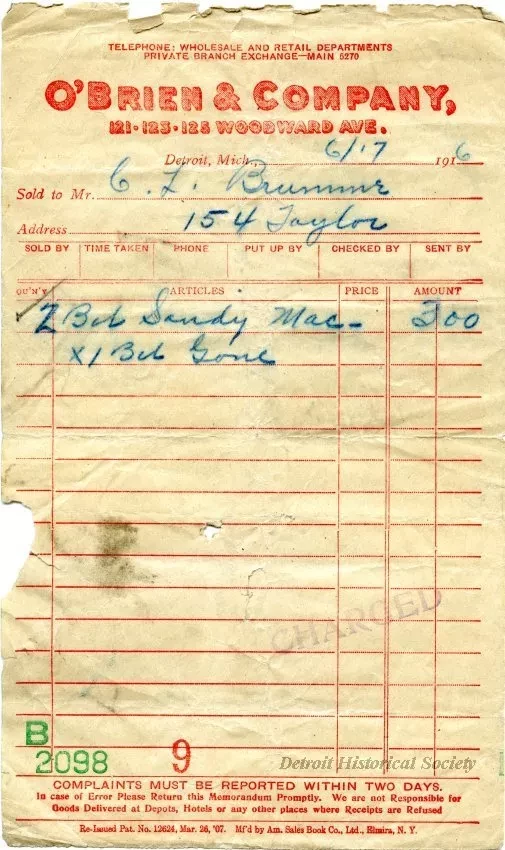 TELEPHONE: WHOLESALE AND RETAIL DEPARTMENTS
PRIVATE BRANCH EXCHANGE—MAIN 5270
O'BRIEN & COMPANY,
121-123-125 WOODWARD AVE.
Detroit, Mich., 6/17 1916
Sold to Mr. C. L. Brummr
Address 154 Taylor
SOLD BY TIME TAKEN PHONE PUT UP BY CHECKED BY SENT BY
QU'N'Y ARTICLES PRICE AMOUNT
2 Bot Sandy Mac- 300
x1 Bot Gone
CHARGED
B
2098 9
Detroit Historical Society
COMPLAINTS MUST BE REPORTED WITHIN TWO DAYS.
In case of Error Please Return this Memorandum Promptly. We are not Responsible for
Goods Delivered at Depots, Hotels or any other places where Receipts are Refused
Re-Issued Pat. No. 12624, Mar. 26, '07. Mf'd by Am. Sales Book Co., Ltd., Elmira, N. Y.